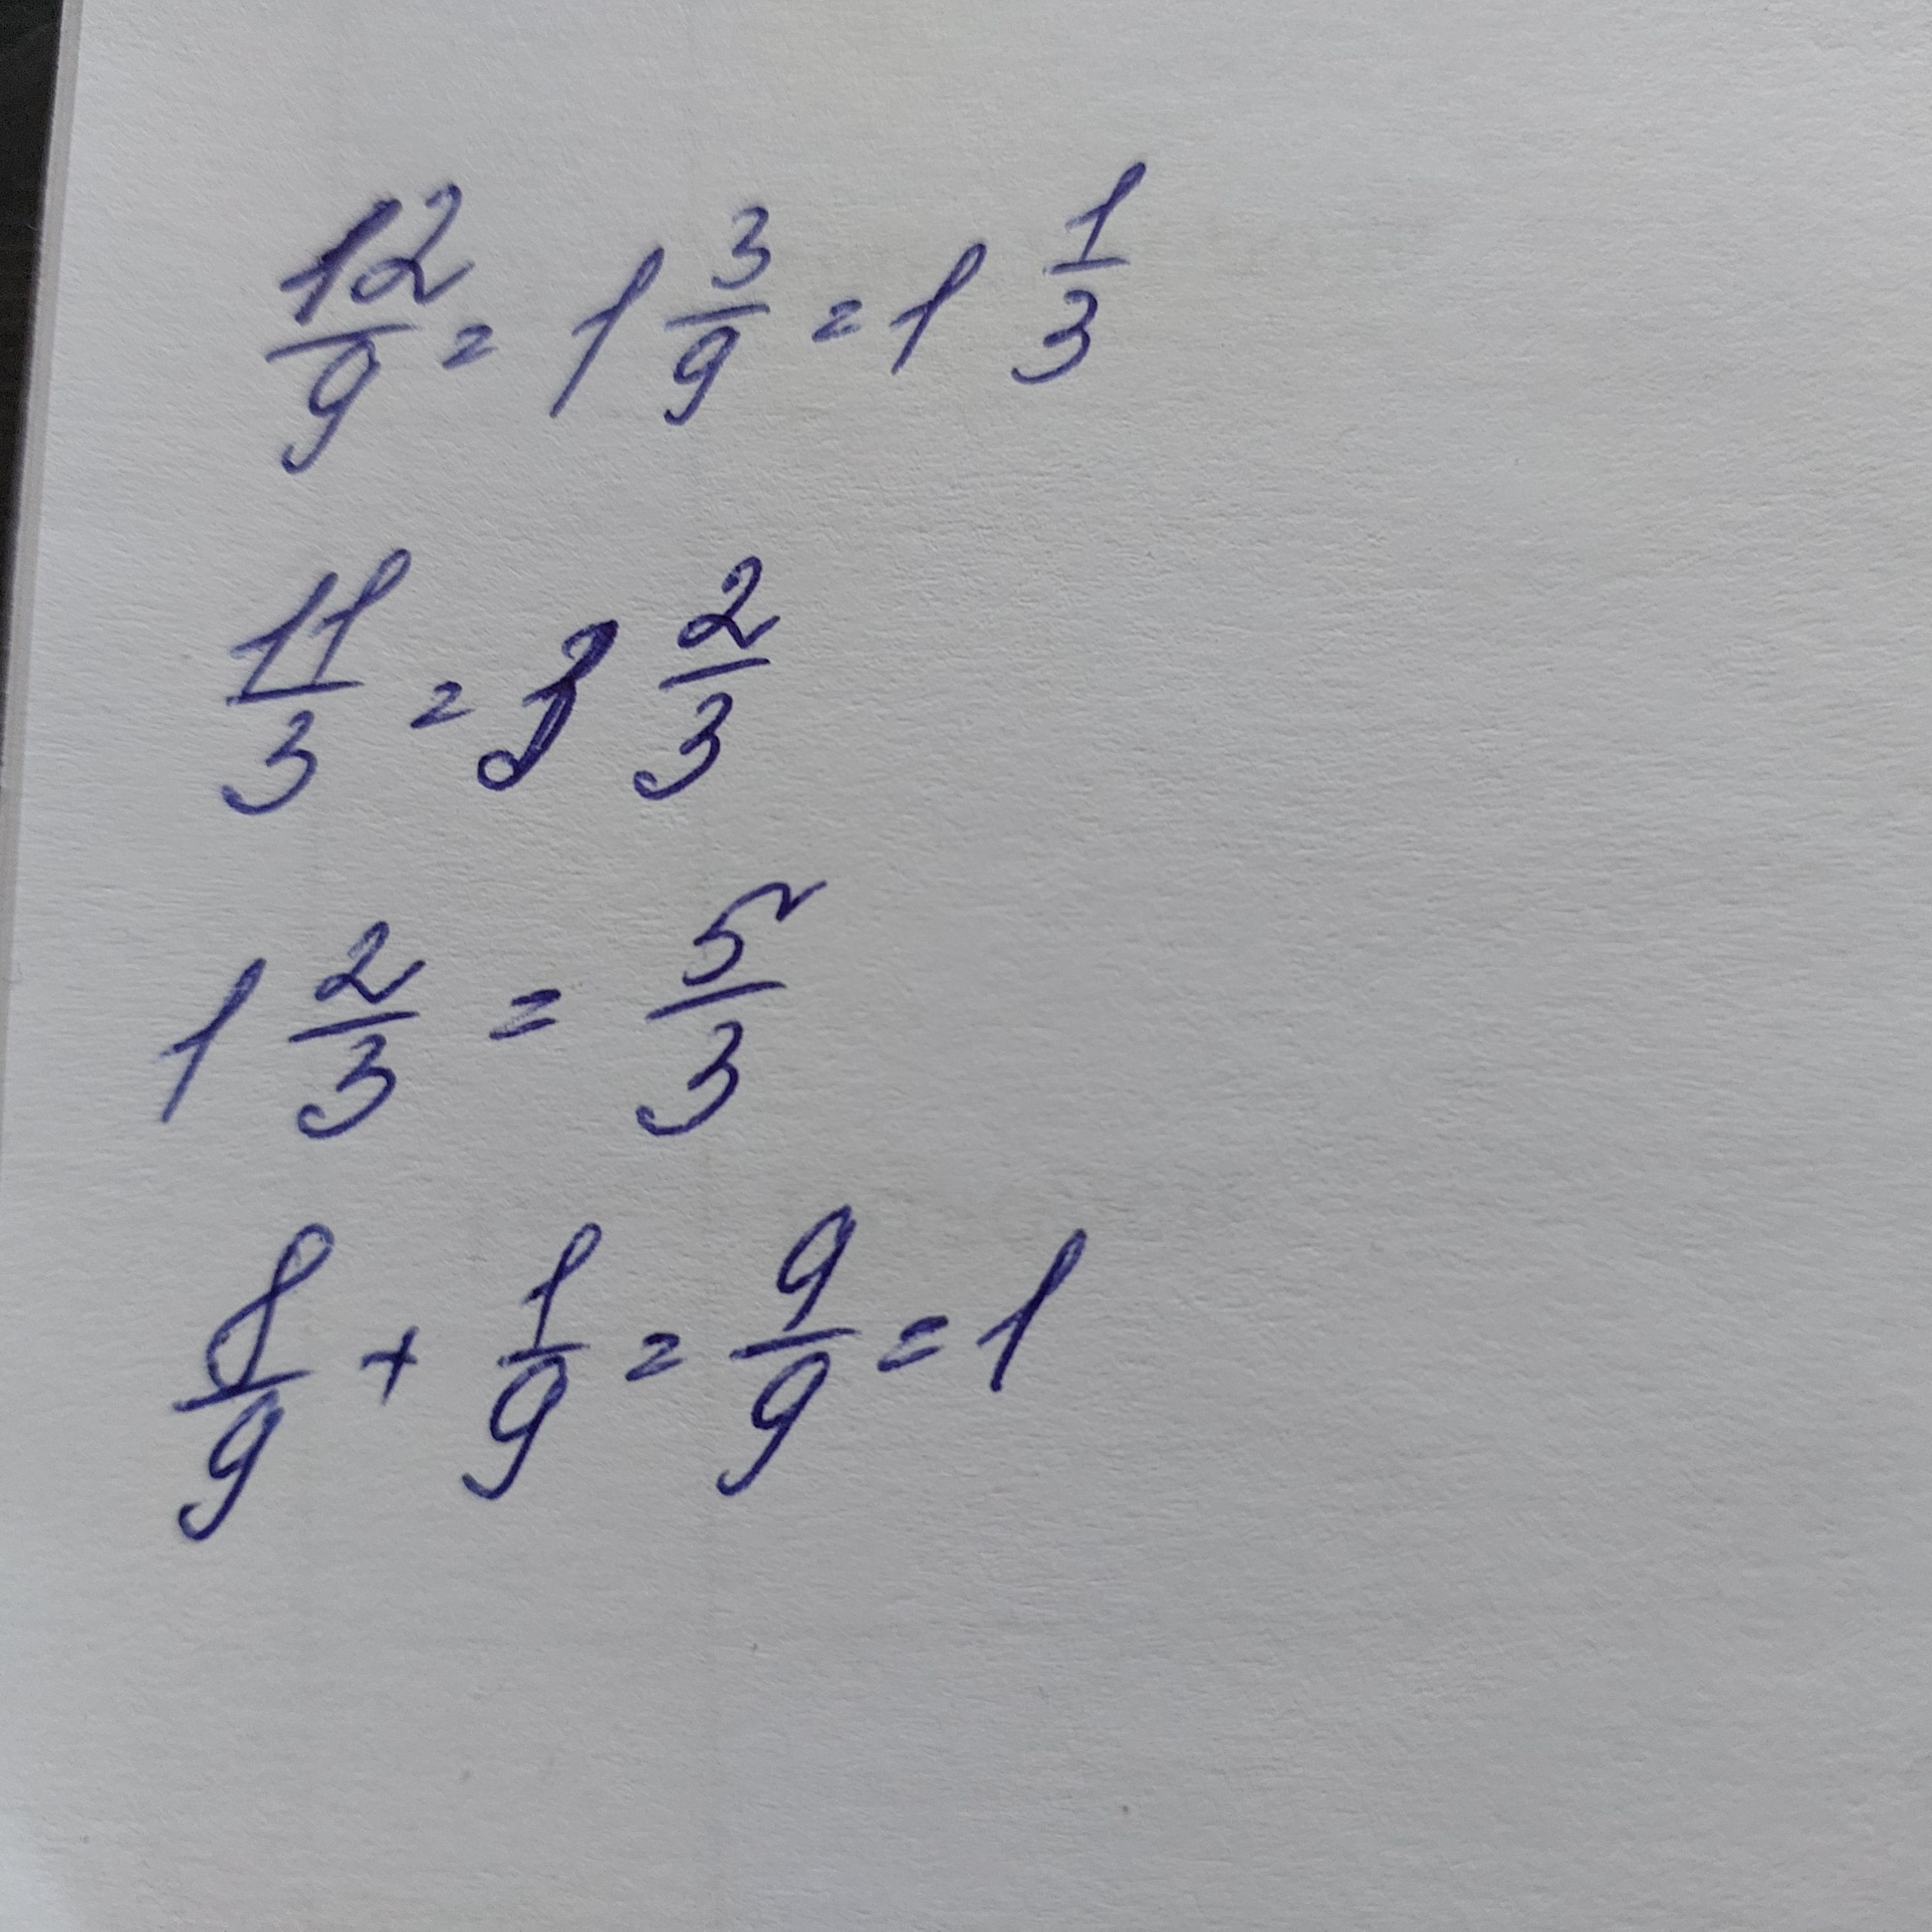 12/9 = 1 3/9 = 1 1/3
11/3 = 3 2/3
1 2/3 = 5/3
8/9 + 1/9 = 9/9 = 1